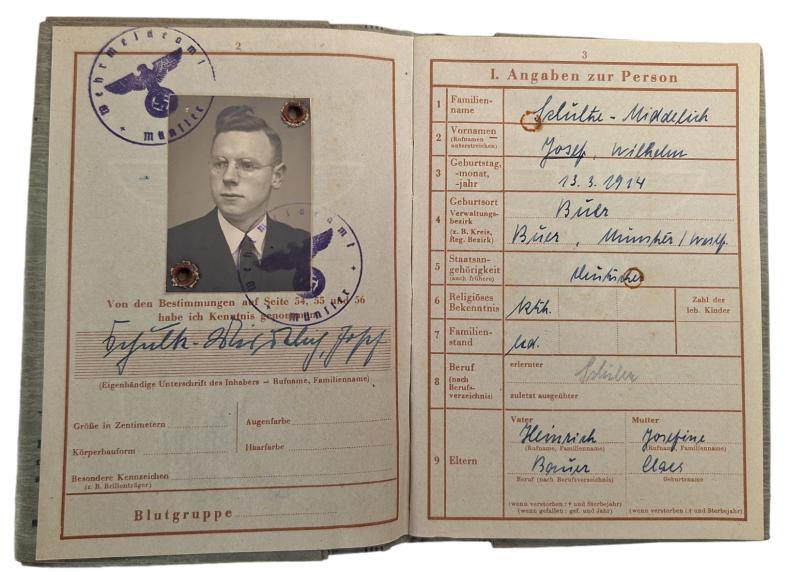 2
Wehrmeldeamt
* Münster *
Wehrmeldeamt
* Münster *
Von den Bestimmungen auf Seite 54, 55 und 56
habe ich Kenntnis genommen
Schulte-Middelich, Josef
(Eigenhändige Unterschrift des Inhabers – Rufname, Familienname)
Größe in Zentimetern
Augenfarbe
Körperbauform
Haarfarbe
Besondere Kennzeichen
(z. B. Brillenträger)
Blutgruppe
3
I. Angaben zur Person
1 Familien-
name
Schulte-Middelich
2 Vornamen
(Rufnamen
unterstreichen)
Josef, Wilhelm
3 Geburtstag,
-monat,
-jahr
13.3.1914
4 Geburtsort
Verwaltungs-
bezirk
(z. B. Kreis,
Reg. Bezirk)
Buer
Buer, Münster/Westf.
5 Staatsan-
gehörigkeit
(auch frühere)
deutscher
6 Religiöses
Bekenntnis
kath.
Zahl der
leb. Kinder
7 Familien-
stand
led.
8 Beruf
(nach
Berufs-
verzeichnis)
erlernter
Schüler
zuletzt ausgeübter
9 Eltern
Vater
Heinrich
(Rufname, Familienname)
Bauer
Beruf (nach Berufsverzeichnis)
(wenn verstorben: † und Sterbejahr)
(wenn gefallen: gef. und Jahr)
Mutter
Josefine
(Rufname, Familienname)
Claes
Geburtsname
(wenn verstorben: † und Sterbejahr)